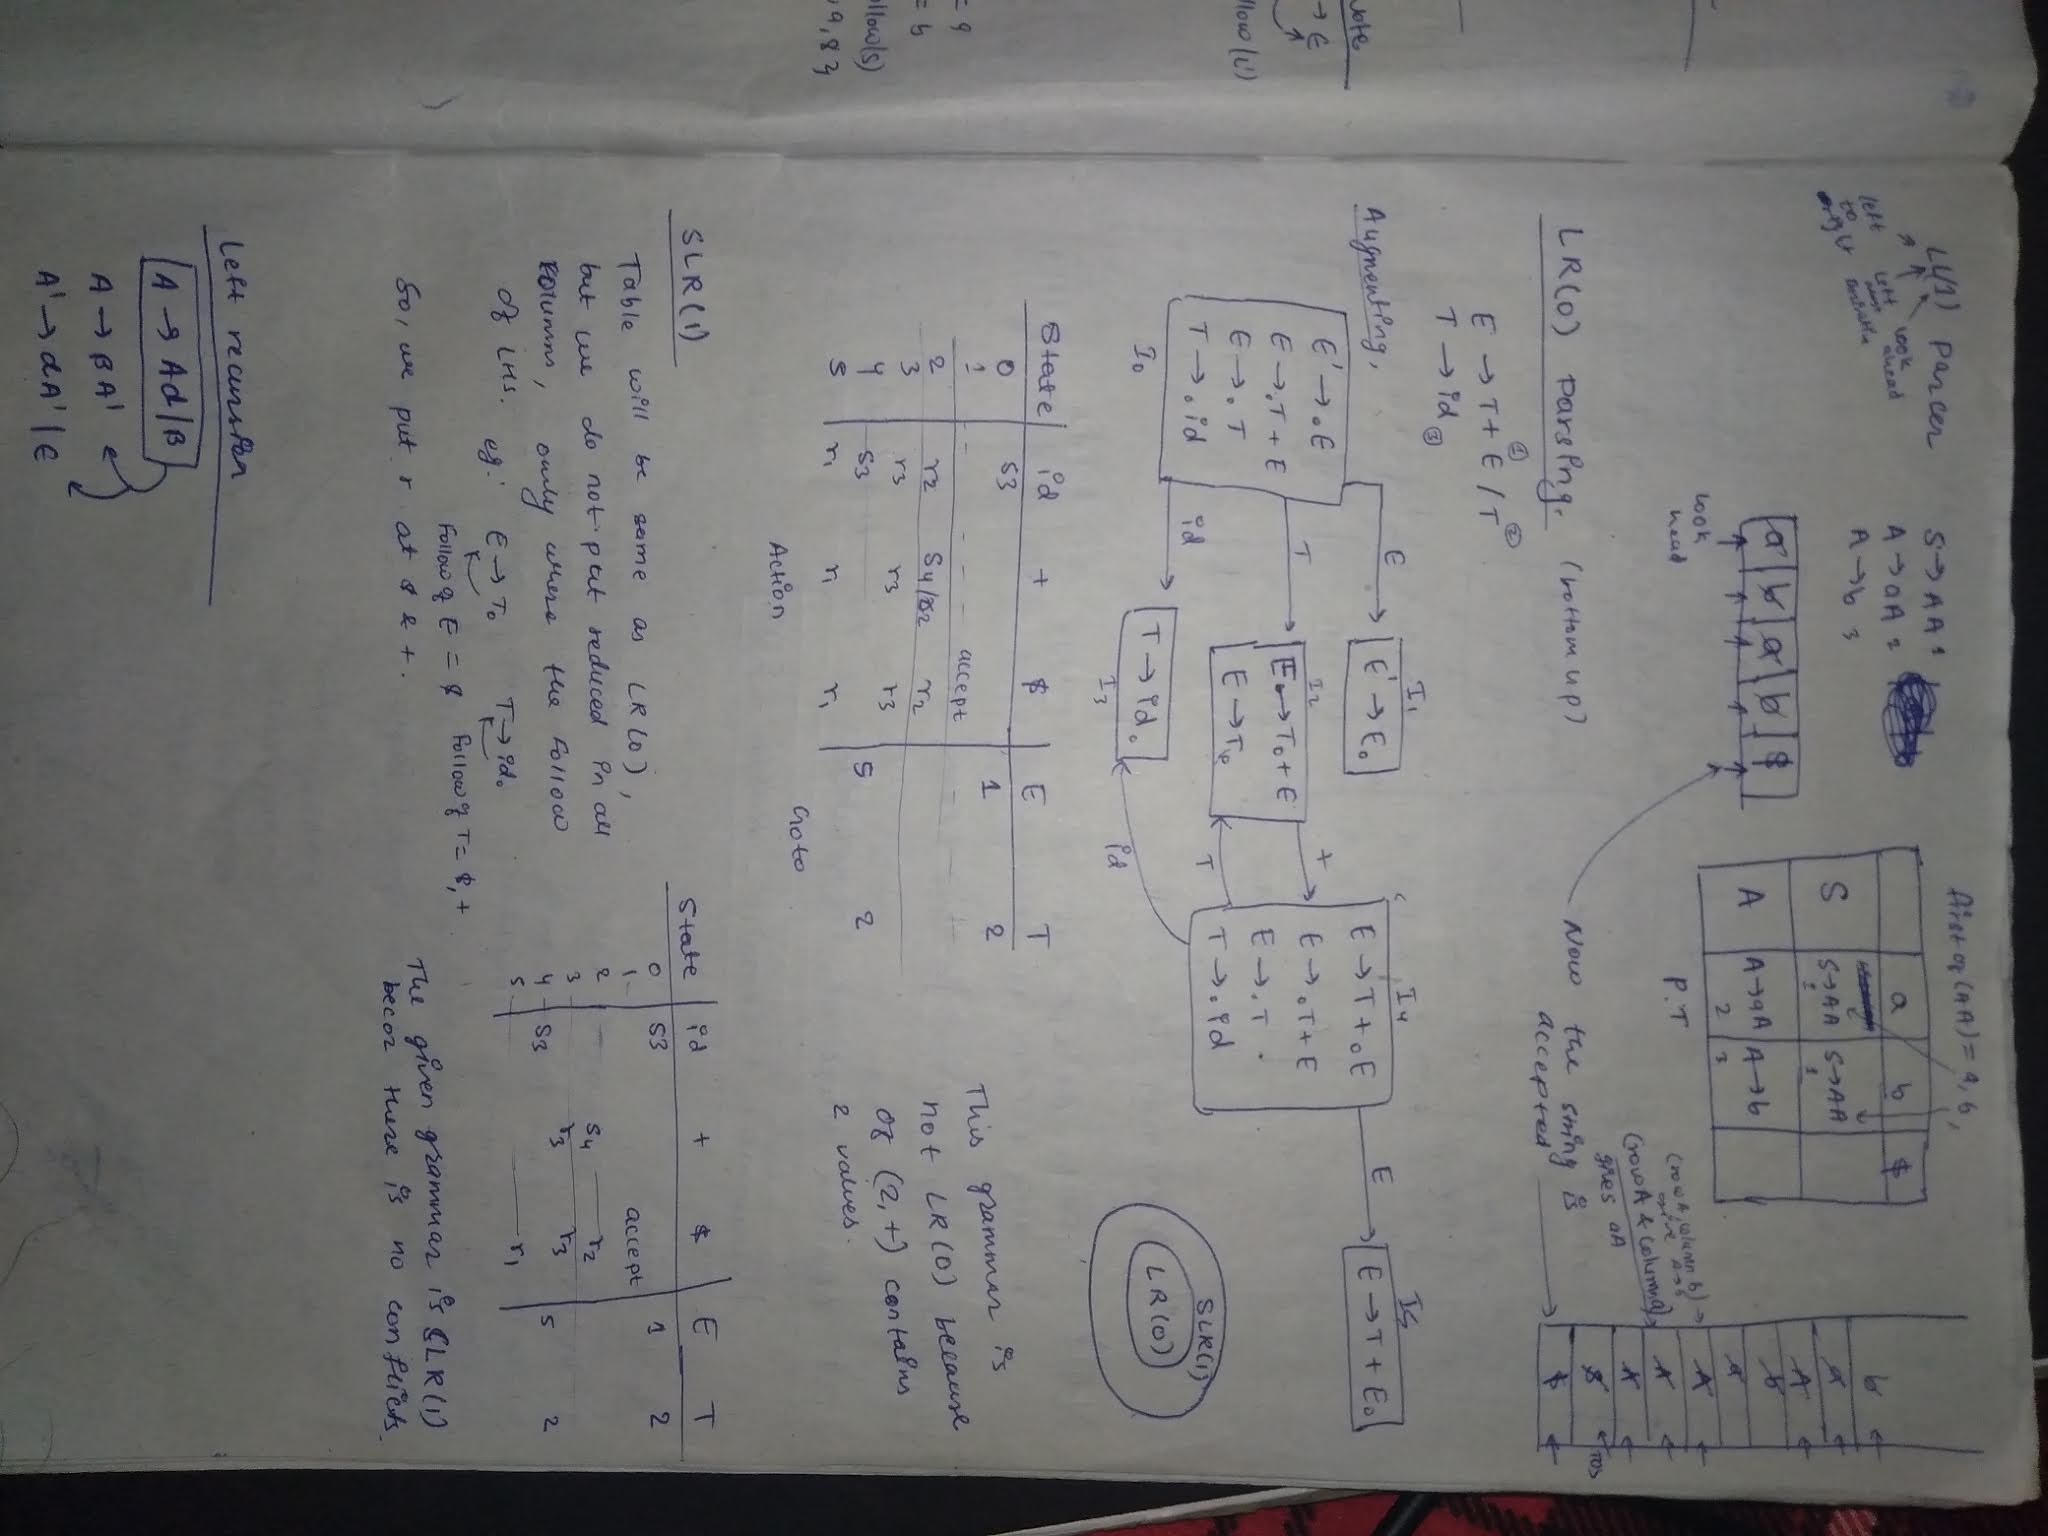 LL(1) Parcer
left to right
Left most
Look ahead
S → AA 1
A → aA 2
A → b 3
a b a b $
Look head
first of (AA) = a, b,
a b $
S S→AA 1 S→AA 1
A A→aA 2 A→b 3
P.T
b
a
A
b
a
A
A
A
$ TOS
$
(row A, column b) give A→b
(row A & column a)
gives aA
Now the string is
accepted
LR(0) Parsing. (bottom up)
E → T + E ① / T ②
T → id ③
Augmenting,
E' → .E
E → .T + E
E → . T
T → . id
I0
E
T
id
I1
E' → E.
I2
E → T. + E
E → T.
T → id.
I3
+
T
id
I4
E → T + .E
E → .T + E
E → .T
T → . id
E
I5
E → T + E.
SLR(1)
LR(0)
State id + $ E T
0 S3 1 2
1 accept
2 r2 S4/r2 r2
3 r3 r3 r3
4 S3 5 2
5 r1 r1 r1
Action Goto
This grammar is
not LR(0) because
of (2, +) contains
2 values.
SLR(1)
Table will be same as LR(0),
but we do not put reduced in all
columns, only where the Follow
of LHS. eg: E → T. T → id.
Follow of E = $ Follow of T = $, +
So, we put r at $ & +.
State id + $ E T
0 S3 1 2
1 accept
2 S4 r2
3 r3 r3
4 S3 5 2
5 r1
The given grammar is SLR(1)
becoz there is no conflicts.
Left recursion
A → Aα | β
A → βA'
A' → αA' | ϵ
Note
→ E
llow (L')
= a
= b
ollow(s)